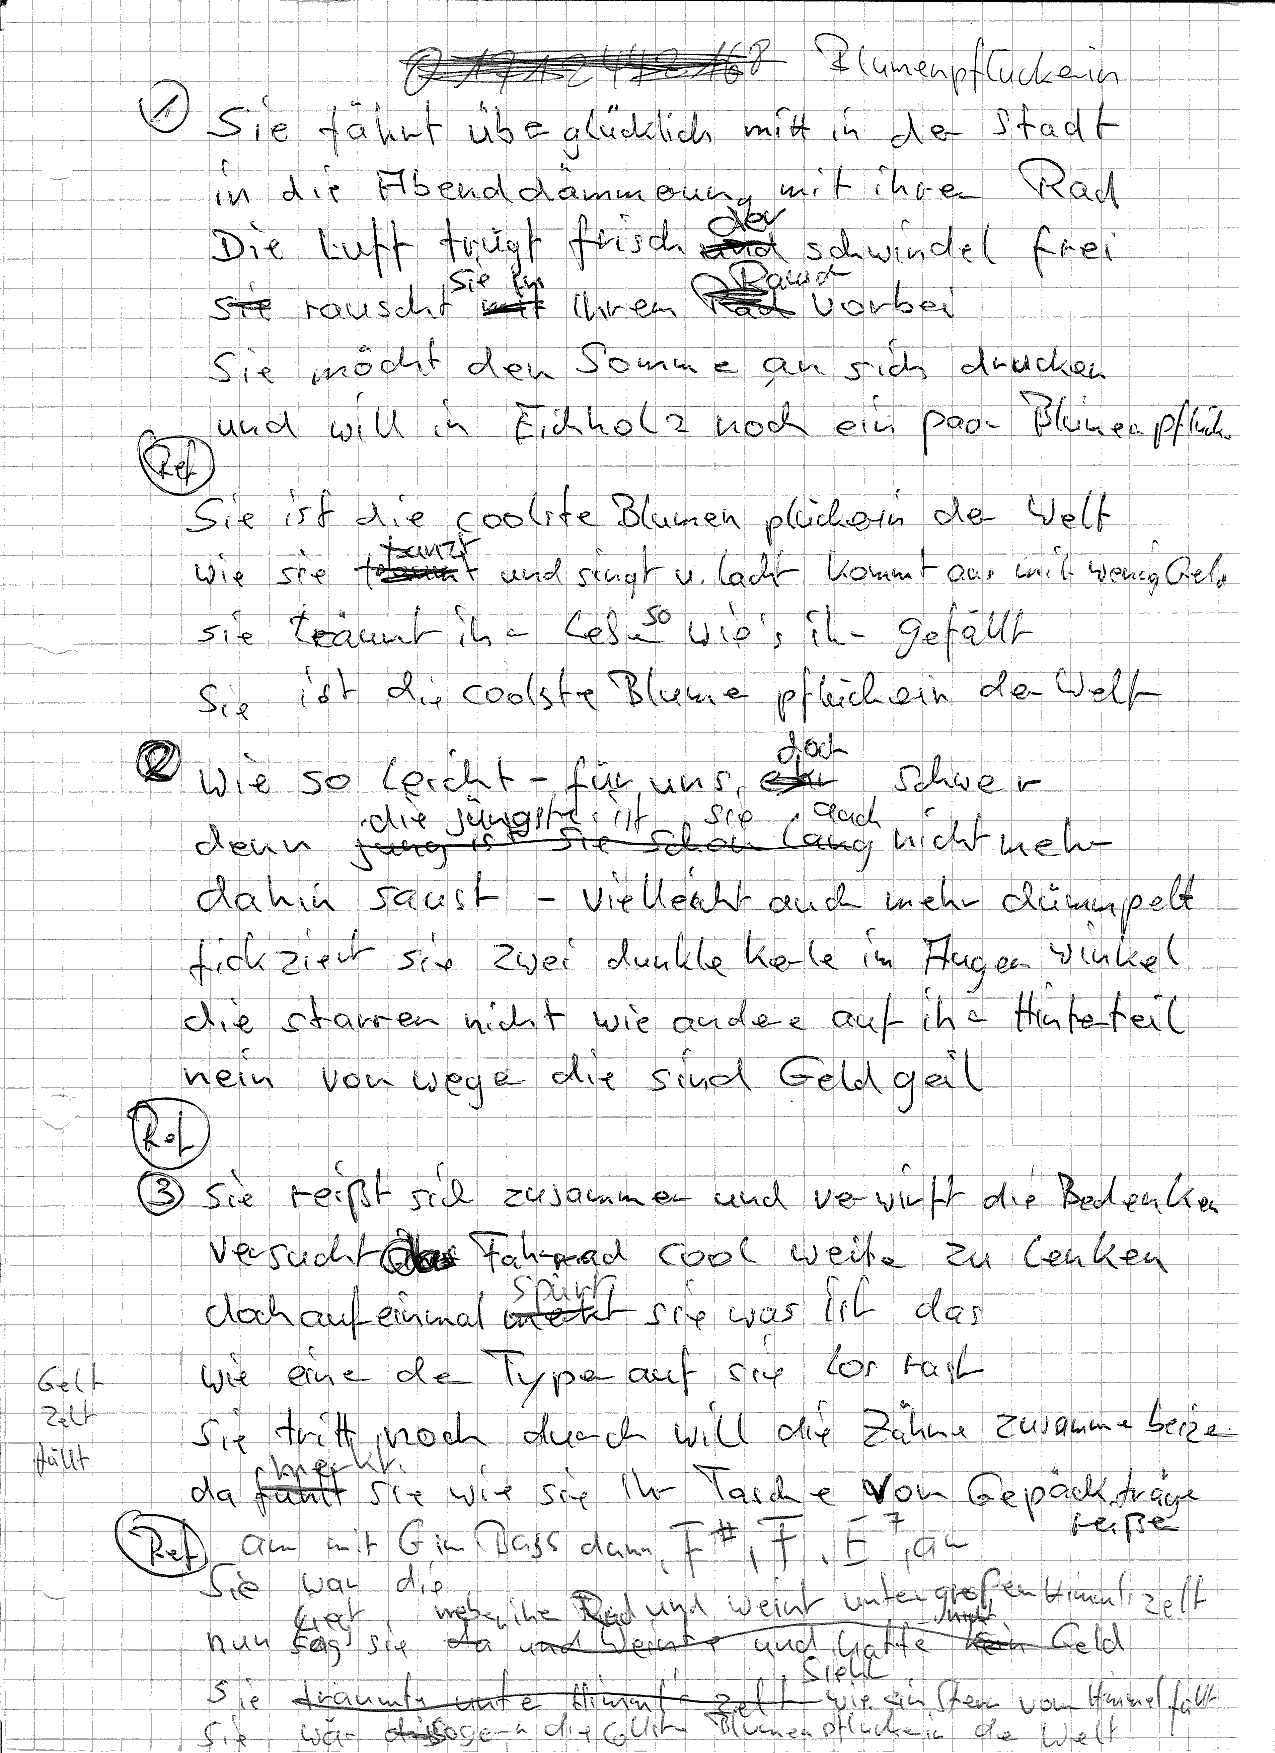 Blumenpflückerin
① Sie fährt überglücklich mitt in der Stadt
in die Abenddämmerung mit ihren Rad
Die Luft trägt frisch und der schwindel frei
sie rauscht mit sie in Ihrem Rad Rausch vorbei
Sie möcht den Sommer an sich drucken
und will in Eichholz noch ein paar Blumen pflück.
Ref
Sie ist die coolste Blumen plückerin der Welt
wie sie tanzt und singt u. lacht kommt aus mit wenig Geld
sie träumt ihr Leben so wie's ihr gefällt
Sie ist die coolste Blume pflückerin der Welt
2 Wie so leicht - für uns, eher doch schwer
denn jung ist sie schon lang die jüngste ist sie auch nicht mehr
dahin saust - vielleicht auch mehr dümmpelt
fickziert sie zwei dunkle Kerle im Augen winkel
die starren nicht wie andere auf ihr Hinterteil
nein von wege die sind Geld geil
Ref
③ Sie reißt sich zusammen und verwirft die Bedenken
versucht das Fahrrad cool weiter zu lenken
doch auf einmal merkt spürt sie was ist das
wie eine der Typen auf sie los rast
Gelt
Zelt
fällt
Sie tritt noch durch will die Zähne zusamme beize
da fühlt merkt sie wie sie Ihr Tasche vom Gepäckträge reiße
Ref am mit G im Bass dann, F#, F, E7, am
Sie war die
nun lag liegt sie da und weinte und hatte kein nicht Geld
neben ihre Rad und weint unter großen Himmelszelt
Sie träumte unter Himmels zelt sieht wie ein Stern vom Himmel fällt
Sie wär so gern die collste Blumenpflückerin der Welt